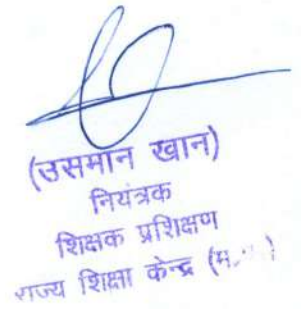 (उसमान खान)
नियंत्रक
शिक्षक प्रशिक्षण
राज्य शिक्षा केन्द्र